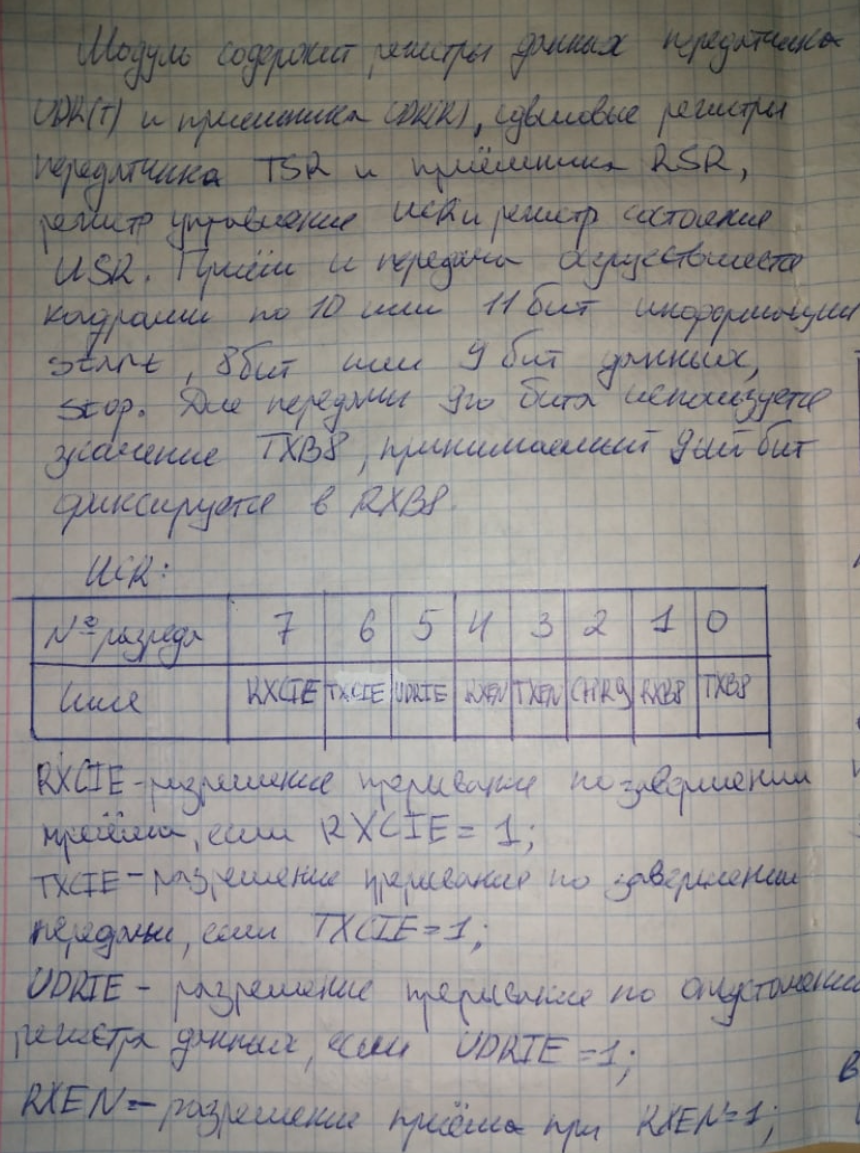 Модуль содержит регистры данных передатчика
UDR(T) и приемника UDR(R), сдвиговые регистры
передатчика TSR и приёмника RSR,
регистр управления UCR и регистр состояния
USR. Приём и передача осуществляется
кадрами по 10 или 11 бит информации
start, 8 бит или 9 бит данных,
stop. Для передачи 9го бита используется
значение TXB8, принимаемый 9ый бит
фиксируется в RXB8.
UCR:
№ разряда 7 6 5 4 3 2 1 0
Имя RXCIE TXCIE UDRIE RXEN TXEN CHR9 RXB8 TXB8
RXCIE - разрешение прерывания по завершении
приёма, если RXCIE = 1;
TXCIE - разрешение прерывания по завершении
передачи, если TXCIE = 1;
UDRIE - разрешение прерывания по опустошении
регистра данных, если UDRIE = 1;
RXEN - разрешение приёма при RXEN = 1;
в